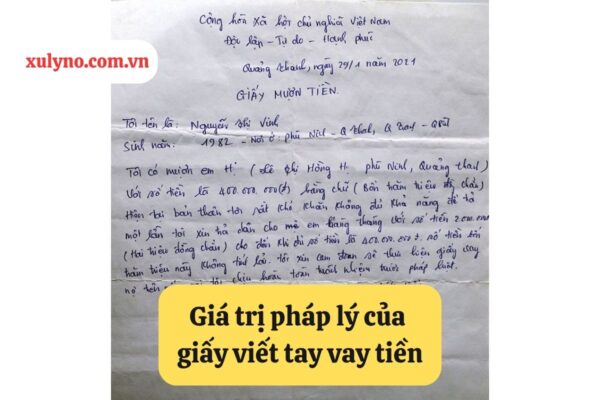 Cộng hòa Xã hội chủ nghĩa Việt Nam
Độc lập - Tự do - Hạnh phúc
xulyno.com.vn
Quảng thanh, ngày 29/1 năm 2021
GIẤY MƯỢN TIỀN.
Tôi tên là: Nguyễn thị Vinh
Sinh năm: 1982 - Nơi ở: phú Ninh -
Tôi có mượn em Hị (Lê thị Hồng Hị phú Ninh, Quảng thanh)
Với số tiền là 400.000.000(đ) bằng chữ (Bốn trăm triệu đ chẵn)
Hiện tại bản thân tôi rất khó khăn không đủ khả năng để trả
một lần tôi xin trả dần cho mẹ em hàng tháng với số tiền 2.000.000
(Hai triệu đồng chẵn) cho đến khi đủ số tiền là 400.000.000đ. số tiền bốn
trăm triệu này không tính lãi. tôi xin cam đoan sẽ thực hiện giấy vay
nợ tôi chịu hoàn toàn trách nhiệm trước pháp luật.
Giá trị pháp lý của
giấy viết tay vay tiền